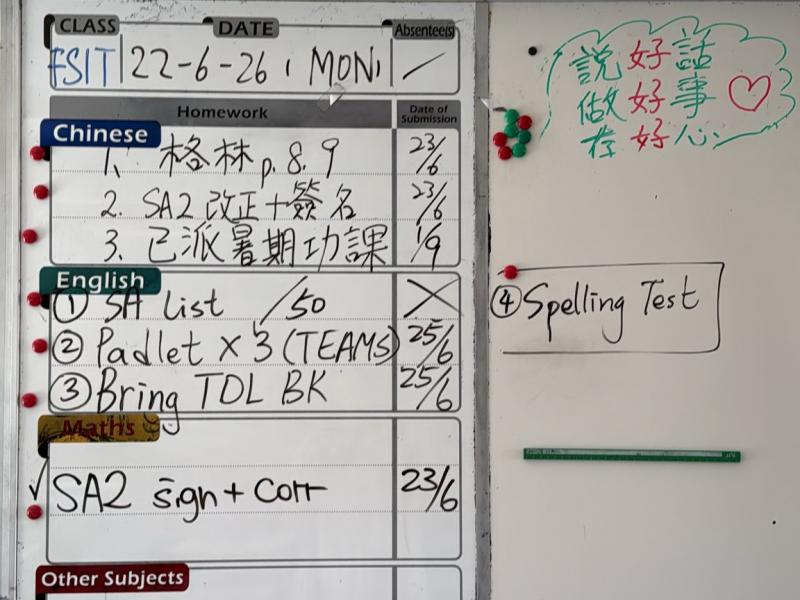 CLASS DATE Absentee(s)
FSIT 22-6-26 (MON) /
Homework Date of Submission
Chinese
1. 格林 p.8.9 23/6
2. SA2 改正+簽名 23/6
3. 已派暑期功課 1/9
English
① SA List /50
② Padlet x 3 (TEAMS) 25/6
③ Bring TDL BK 25/6
Maths
✓ SA2 sign + Corr 23/6
Other Subjects
說好話
做好事♡
存好心
④ Spelling Test